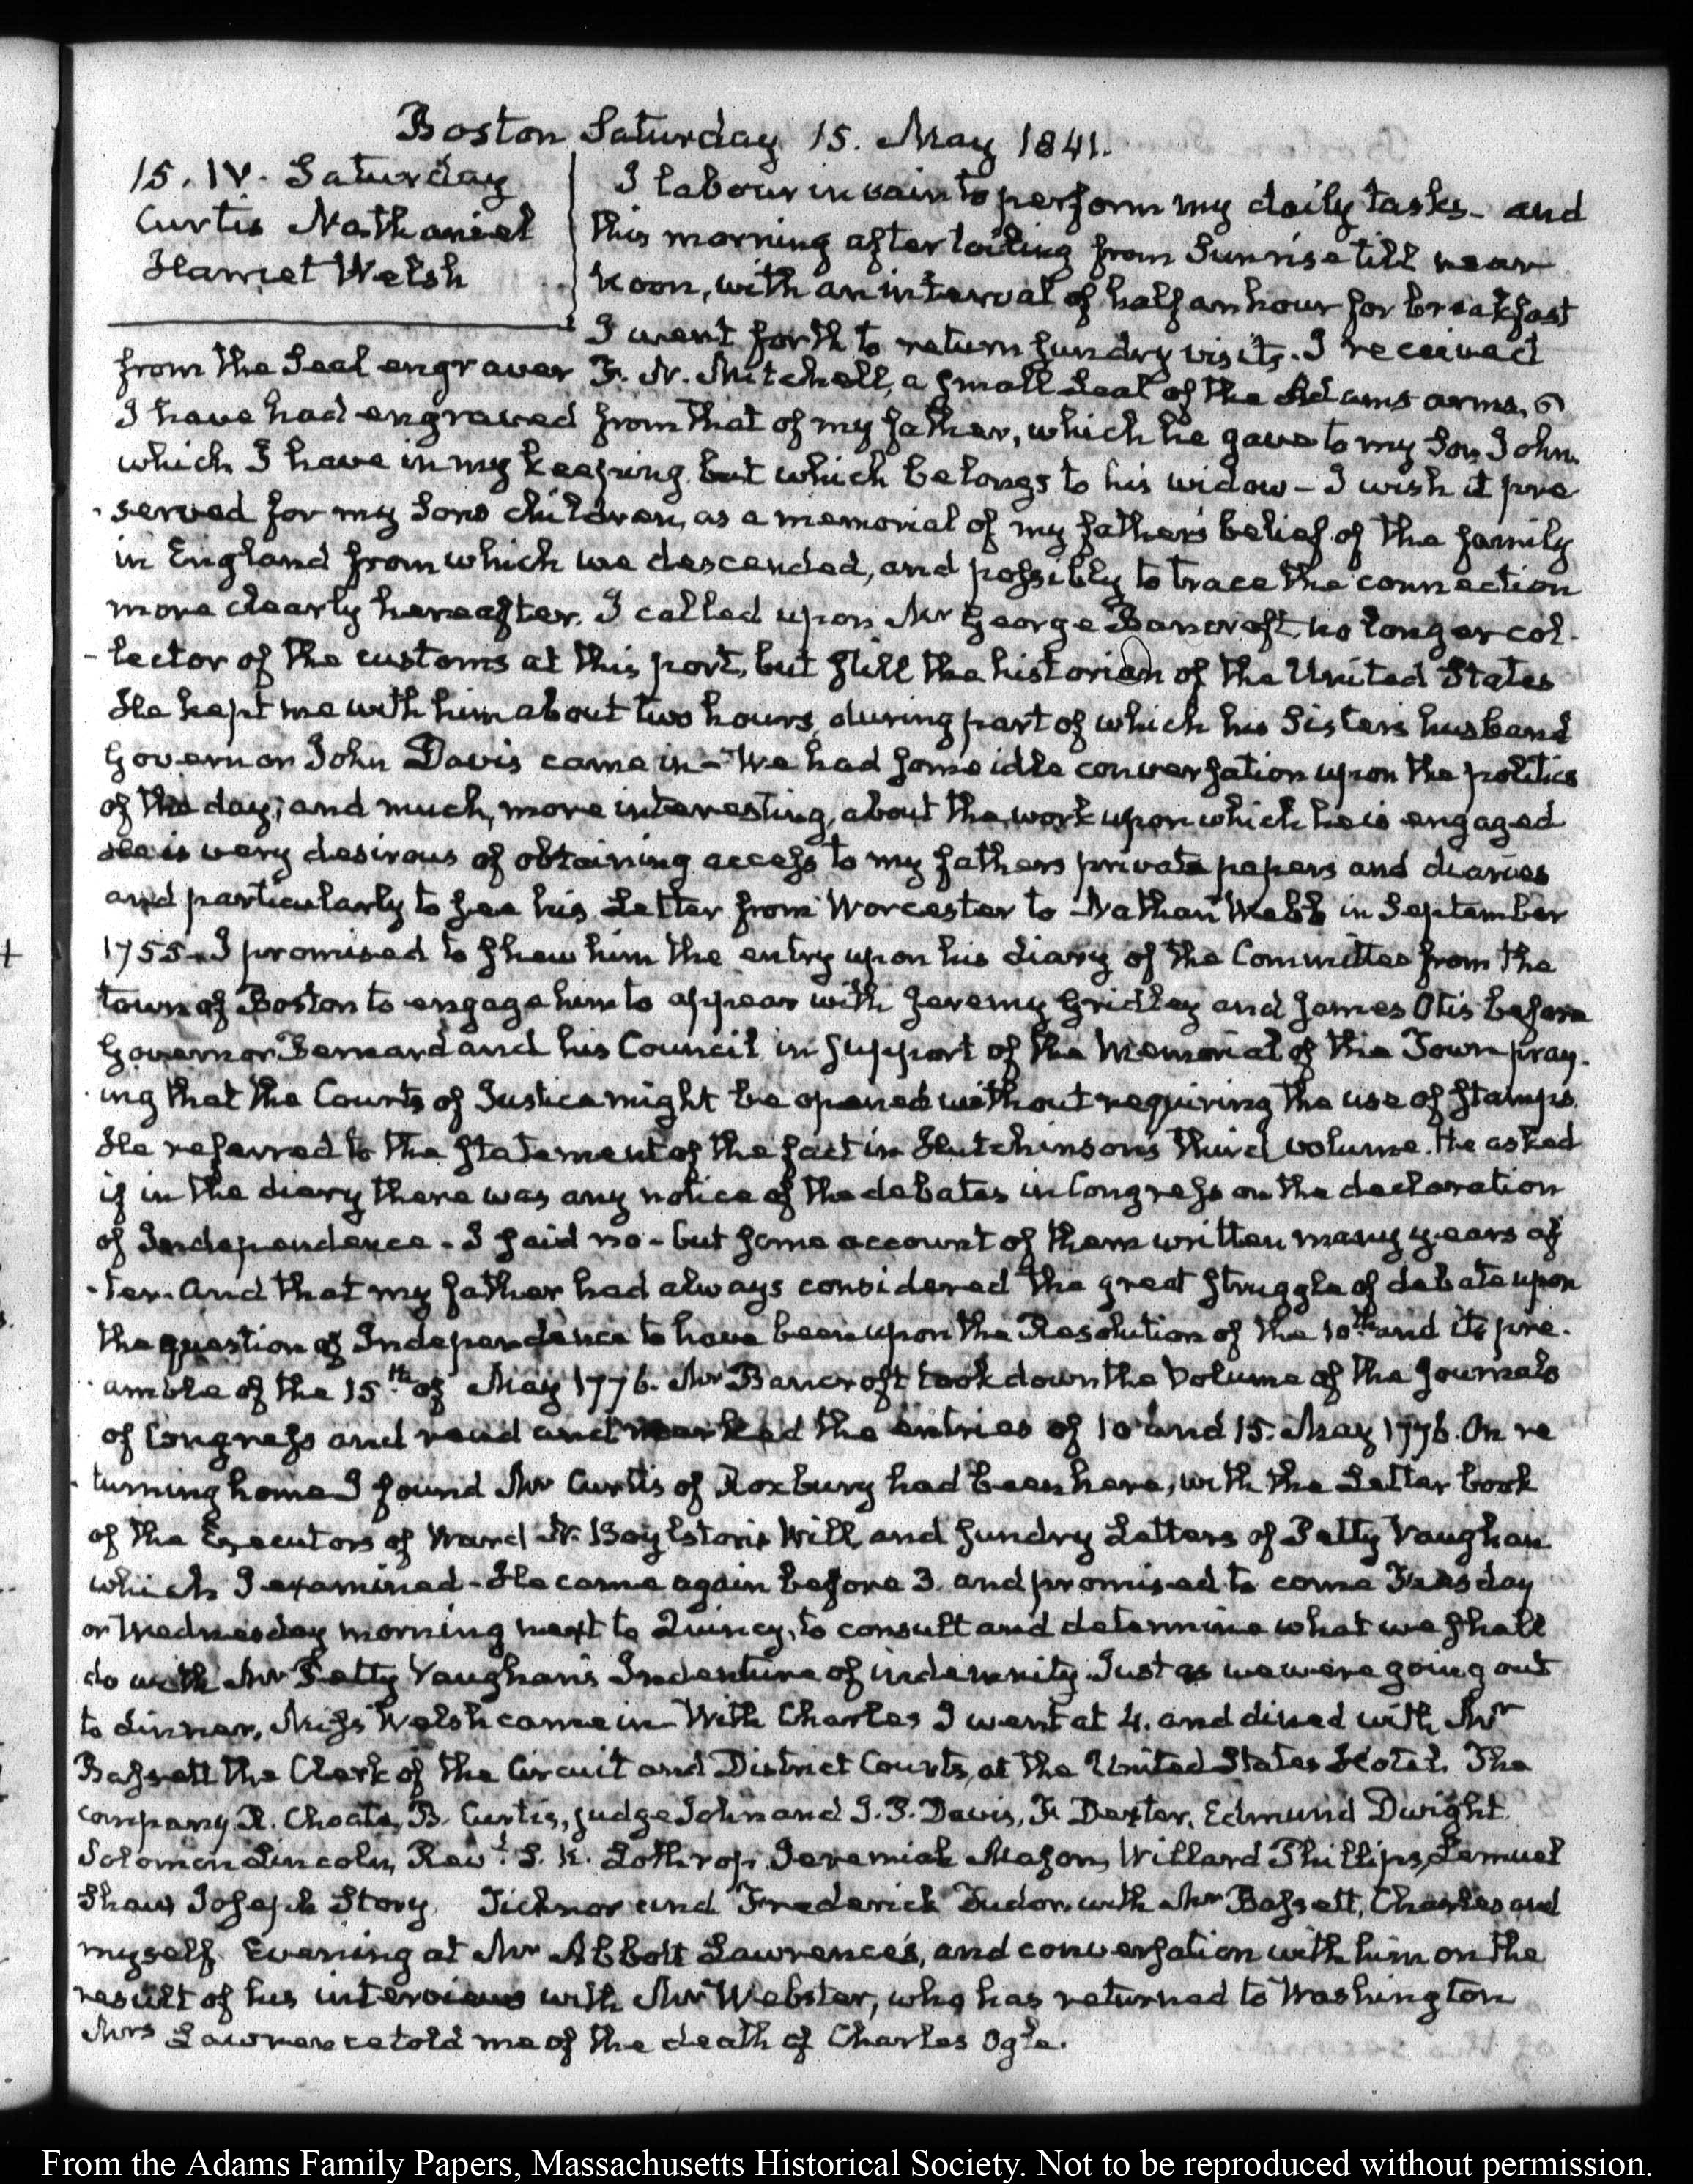 Boston Saturday 15. May 1841.
15. IV. Saturday
Curtis Nathaniel
Harriet Welsh
I labour in vain to perform my daily tasks - and
this morning after toiling from Sunrise till near
Noon, with an interval of half an hour for breakfast
I went forth to return sundry visits. I received
from the Seal engraver F. N. Mitchell, a small Seal of the Adams arms,
I have had engraved from that of my father, which he gave to my Son John.
which I have in my keeping but which belongs to his widow - I wish it pre
-served for my Sons children, as a memorial of my father's belief of the family
in England from which we descended, and possibly to trace the connection
more clearly hereafter. I called upon Mr George Bancroft, no longer col-
-lector of the customs at this port, but still the historian of the United States
He kept me with him about two hours, during part of which his Sister's husband
Governor John Davis came in - We had some idle conversation upon the politics
of the day; and much, more interesting, about the work upon which he is engaged
He is very desirous of obtaining access to my fathers private papers and diaries
and particularly to see his Letter from Worcester to Nathan Webb in September
+ 1755. I promised to shew him the entry upon his diary of the Committee from the
town of Boston to engage him to appear with Jeremy Gridley and James Otis before
Governor Bernard and his Council in support of the Memorial of the Town pray-
ing that the Courts of Justice might be opened without requiring the use of stamps.
He referred to the statement of the fact in Hutchinson's third volume. He asked
if in the diary there was any notice of the debates in Congress on the declaration
of Independence - I said no - but some account of them written many years af
-ter. And that my father had always considered the great struggle of debate upon
the question of Independence to have been upon the Resolution of the 10th and its pre-
amble of the 15th of May 1776. Mr Bancroft took down the Volume of the Journals
of Congress and read and marked the entries of 10 and 15. May 1776. On re
-turning home I found Mr Curtis of Roxbury had been here, with the Letter book
of the Executors of Ward N. Boylston's Will, and sundry Letters of Petty Vaughan
which I examined - He came again before 3. and promised to come Tuesday
or Wednesday morning next to Quincy, to consult and determine what we shall
do with Mr Petty Vaughan's Indenture of indemnity. Just as we were going out
to dinner, Miss Welsh came in - With Charles I went at 4. and dined with Mr
Bassett the Clerk of the Circuit and District Courts, at the United States Hotel. The
company R. Choate, B. Curtis, Judge John and I. P. Davis, F. Dexter, Edmund Dwight
Solomon Lincoln, Revd. S. K. Lothrop, Jeremiah Mason, Willard Phillips, Lemuel
Shaw, Joseph Story, Ticknor and Frederick Tudor, with Mr Bassett, Charles and
myself. Evening at Mr Abbott Lawrence's, and conversation with him on the
result of his interviews with Mr Webster, who has returned to Washington
Mrs Lawrence told me of the death of Charles Ogle.
From the Adams Family Papers, Massachusetts Historical Society. Not to be reproduced without permission.